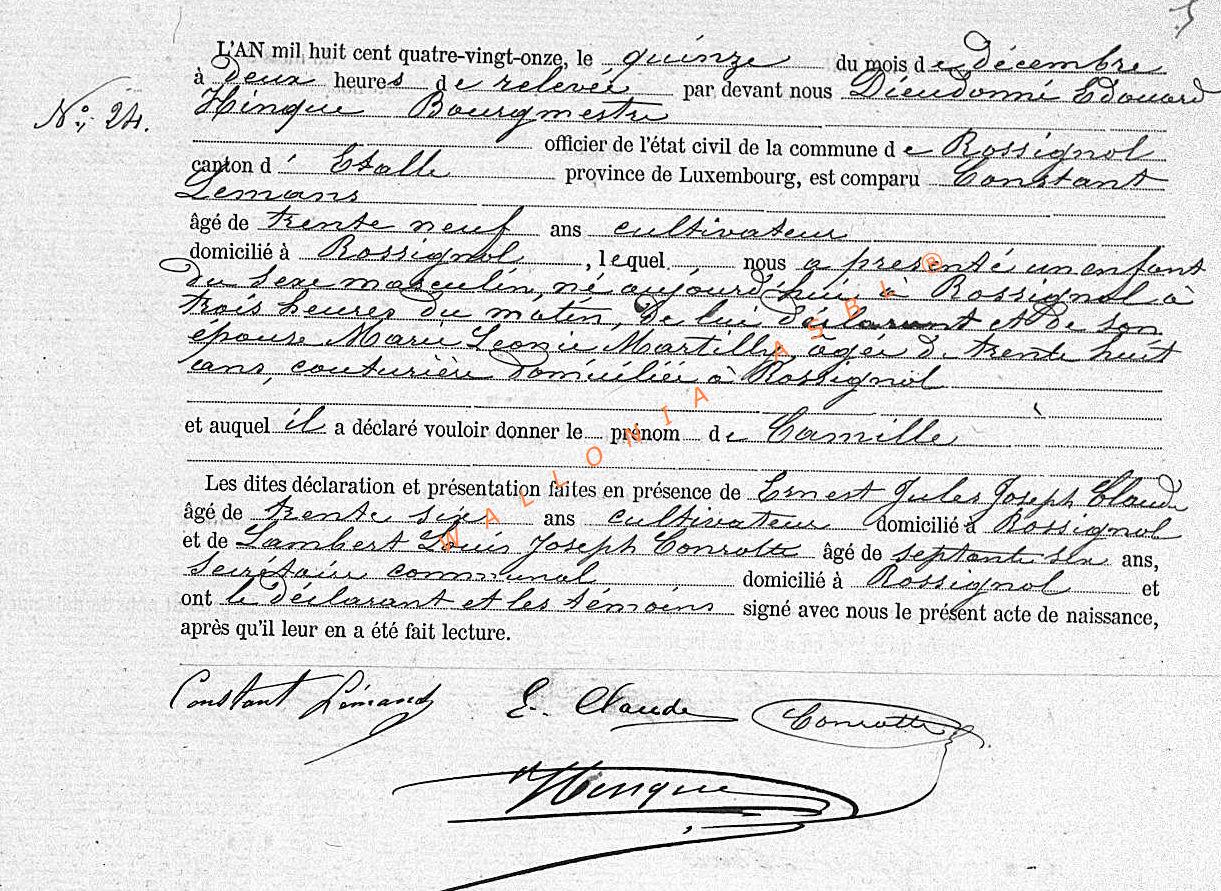 L'AN mil huit cent quatre-vingt-onze, le quinze du mois de décembre
à deux heures de relevée par devant nous Dieudonné Edouard
No; 24.
Hinque Bourgmestre
officier de l'état civil de la commune de Rossignol
canton d' Etalle province de Luxembourg, est comparu Constant
Lemans
âgé de trente neuf ans cultivateur
domicilié à Rossignol, lequel nous a présenté un enfant
du sexe masculin, né aujourd'hui à Rossignol à
trois heures du matin, de lui déclarant et de son
épouse Marie Leonie Martilly âgée de trente huit
ans, couturière domiciliée à Rossignol
et auquel il a déclaré vouloir donner le prénom de Camille
Les dites déclaration et présentation faites en présence de Ernest Jules Joseph Claude
âgé de trente six ans cultivateur domicilié à Rossignol
et de Lambert Louis Joseph Conrotte âgé de septante six ans,
secrétaire communal domicilié à Rossignol et
ont le déclarant et les témoins signé avec nous le présent acte de naissance,
après qu'il leur en a été fait lecture.
Constant Lémans E. Claude Conrotte
Hinque
WALLONIA ASBL ®